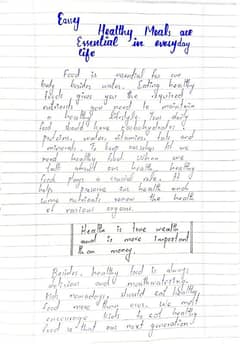 Essay
Healthy Meals are
Essential in everyday
life
Food is essential for our
body besides water. Eating healthy
foods gives you the required
nutrients you need to maintain
a healthy lifestyle. Your daily
food should have carbohydrates,
proteins, water, vitamins, fats and
minerals. To keep ourselves fit we
need healthy food. When we
talk about our health, healthy
food plays a crucial role. It
helps preserve our health and
some nutrients renew the health
of various organs.
Health is true wealth
and is more important
than money.
Besides, healthy food is always
delicious and mouthwatering.
Kids nowadays should eat healthy
food more than ever. We must
encourage kids to eat healthy
food so that our next generation